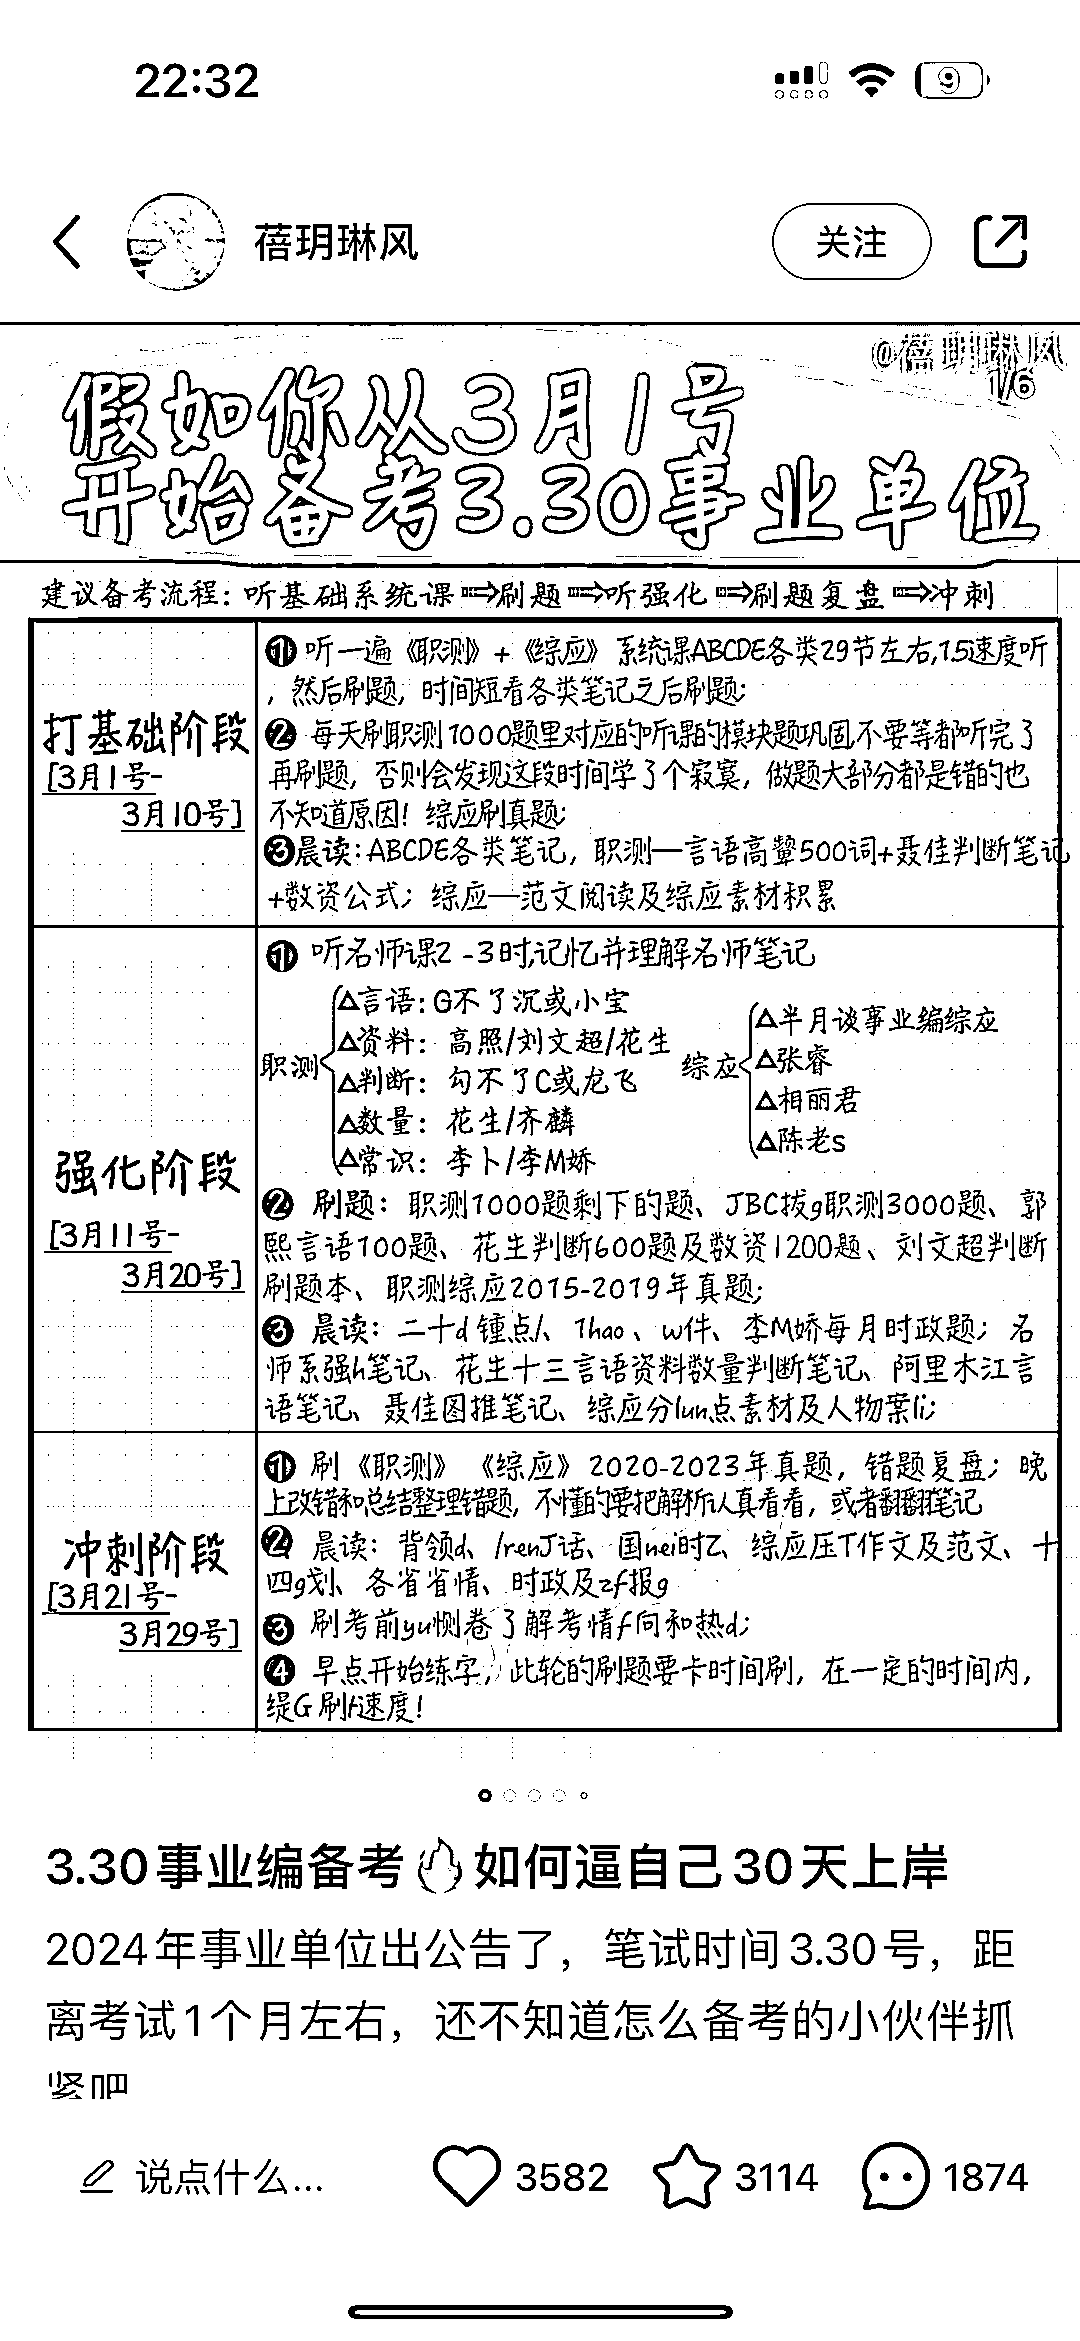 22:32
9
蓓玥琳风
关注
@蓓玥琳风
1/6
假如你从3月1号
开始备考3.30事业单位
建议备考流程：听基础系统课⇨刷题⇨听强化⇨刷题复盘⇨冲刺
打基础阶段
[3月1号-
3月10号]
① 听一遍《职测》+《综应》系统课ABCDE各类29节左右,1.5速度听
，然后刷题，时间短看各类笔记之后刷题;
② 每天刷职测1000题里对应的听课的模块题巩固,不要等都听完了
再刷题，否则会发现这段时间学了个寂寞，做题大部分都是错的也
不知道原因！综应刷真题;
③晨读：ABCDE各类笔记，职测—言语高颦500词+聂佳判断笔记
+数资公式；综应—范文阅读及综应素材积累
强化阶段
[3月11号-
3月20号]
① 听名师课2-3时,记忆并理解名师笔记
职测
△言语：G不了沉或小宝
△资料：高照/刘文超/花生
△判断：勾不了C或龙飞
△数量：花生/齐麟
△常识：李卜/李M娇
综应
△半月谈事业编综应
△张睿
△相丽君
△陈老s
② 刷题：职测1000题剩下的题、JBC拔g职测3000题、郭
熙言语100题、花生判断600题及数资1200题、刘文超判断
刷题本、职测综应2015-2019年真题;
③ 晨读：二十d锺点/、1hao、w件、李M娇每月时政题；名
师系强h笔记、花生十三言语资料数量判断笔记、阿里木江言
语笔记、聂佳图推笔记、综应分lun点素材及人物案li;
冲刺阶段
[3月21号-
3月29号]
① 刷《职测》《综应》2020-2023年真题，错题复盘；晚
上改错和总结整理错题，不懂的要把解析认真看看，或者翻翻笔记
② 晨读：背领d、/renJ话、国nei时Z、综应压T作文及范文、十
四g划、各省省情、时政及zf报g
③ 刷考前yu恻卷了解考情f向和热d;
④ 早点开始练字，此轮的刷题要卡时间刷，在一定的时间内，
缇G刷t速度！
3.30事业编备考🔥如何逼自己30天上岸
2024年事业单位出公告了，笔试时间3.30号，距
离考试1个月左右，还不知道怎么备考的小伙伴抓
紧吧
说点什么...
3582
3114
1874